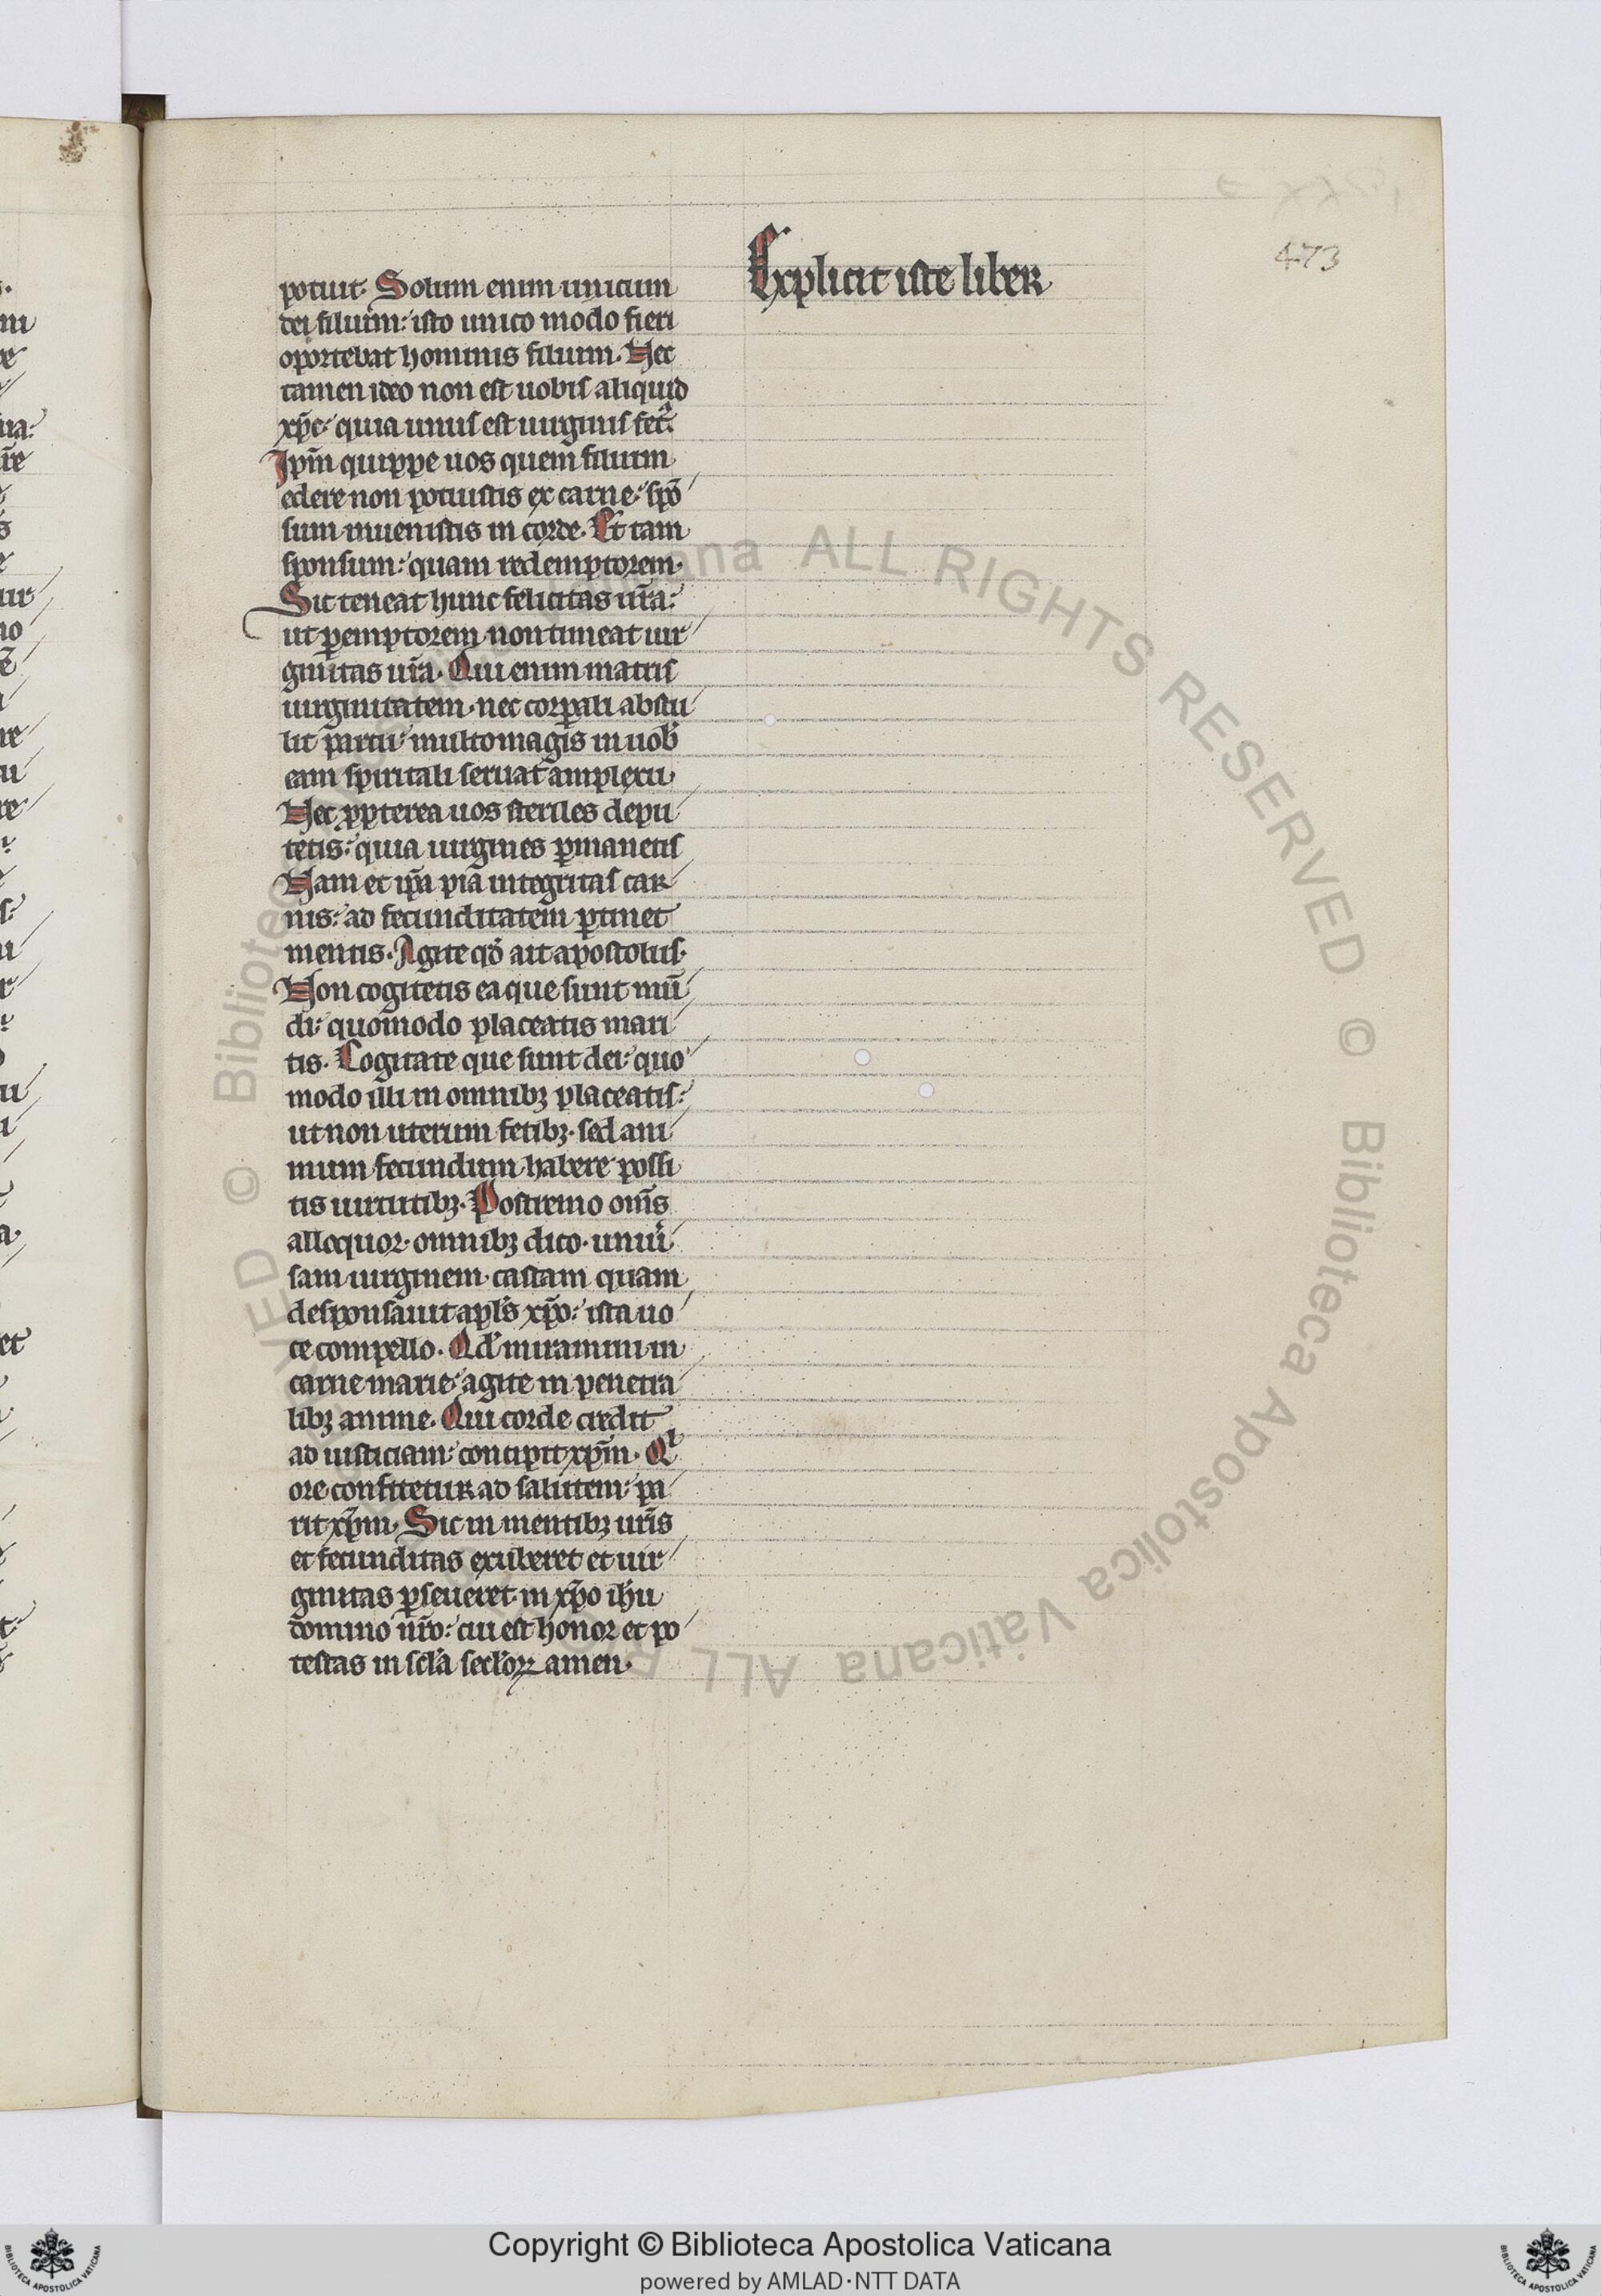 potuit. Solum enim unicum
dei filium: isto unico modo fieri
oportebat hominis filium. Nec
tamen ideo non est uobis aliquid
xp̄c quia unus est uirginis fet᷒.
Ip̄m quippe uos quem filium
edere non potuistis ex carne: spō
sum inuenistis in corde. Et tam
sponsum: quam redemptorem.
Sic teneat hunc felicitas ur̄a:
ut ꝑemptorem non timeat uir
ginitas ur̄a. Qui enim matris
uirginitatem. nec corꝑali abstu
lit partu: multo magis in uob̄
eam spiritali seruat amplexu.
Nec ꝓpterea uos steriles depu
tetis: quia uirgines ꝑmanetis
Nam et ip̄a pia integritas car
nis: ad fecunditatem ꝑtinet
mentis. Agite qd̄ ait apostolus.
Non cogitetis ea que sunt mū
di: quomodo placeatis mari
tis. Cogitate que sunt dei: quo
modo illi in omnibꝫ placeatis:
ut non uterum fetibꝫ. sed ani
mum fecundum habere possi
tis uirtutibꝫ. Postremo om̄s
alloquor. omnibꝫ dico. uniu̾
sam uirginem castam quam
desponsauit apl̄s xp̄o: ista uo
ce compello. Qd̄ miramini in
carne marie: agite in penetra
libꝫ anime. Qui corde credit
ad iusticiam: concipit xp̄m. Qͥ
ore confitetur ad salutem: pa
rit xp̄m. Sic in mentibꝫ ur̄is
et fecunditas exuberet et uir
ginitas ꝑseueret. in xp̄o ih̄u
domino nr̄o: cui est honor et po
testas in scl̄a secl̄oꝝ amen.
Explicit iste liber
473
Copyright © Biblioteca Apostolica Vaticana
powered by AMLAD·NTT DATA